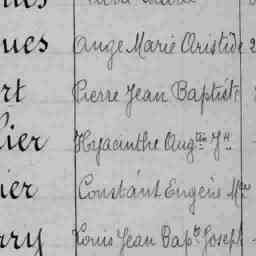 ques Ange Marie Aristide 2
ert Pierre Jean Baptiste
lier Hyacinthe Aug.tin J.h
ier Constant Eugène M.ie
rry Louis Jean Bap.te Joseph